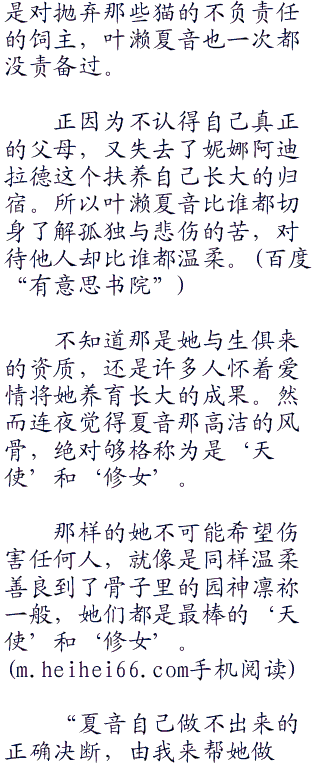 是对抛弃那些猫的不负责任
的饲主，叶濑夏音也一次都
没责备过。
正因为不认得自己真正
的父母，又失去了妮娜阿迪
拉德这个扶养自己长大的归
宿。所以叶濑夏音比谁都切
身了解孤独与悲伤的苦，对
待他人却比谁都温柔。(百度
“有意思书院”)
不知道那是她与生俱来
的资质，还是许多人怀着爱
情将她养育长大的成果。然
而连夜觉得夏音那高洁的风
骨，绝对够格称为是‘天
使’和‘修女’。
那样的她不可能希望伤
害任何人，就像是同样温柔
善良到了骨子里的园神凛祢
一般，她们都是最棒的‘天
使’和‘修女’。
(m.heihei66.com手机阅读)
“夏音自己做不出来的
正确决断，由我来帮她做